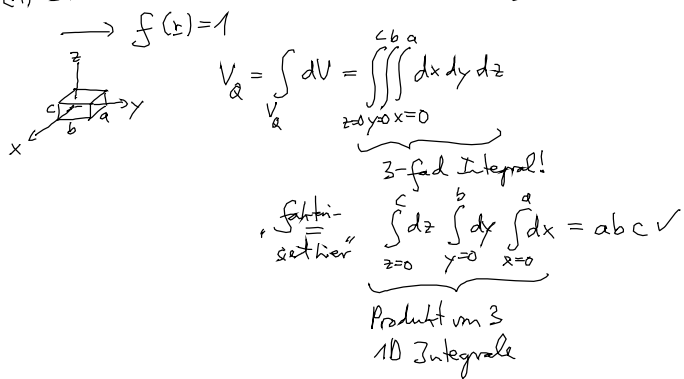 → f(r) = 1
z
c
y
a
b
x
V_Q = ∫_{V_Q} dV = ∫_{z=0}^{c} ∫_{y=0}^{b} ∫_{x=0}^{a} dx dy dz
3-fach Integral!
"faktori-
siert hier" = ∫_{z=0}^{c} dz ∫_{y=0}^{b} dy ∫_{x=0}^{a} dx = abc ✓
Produkt von 3
1D Integrale